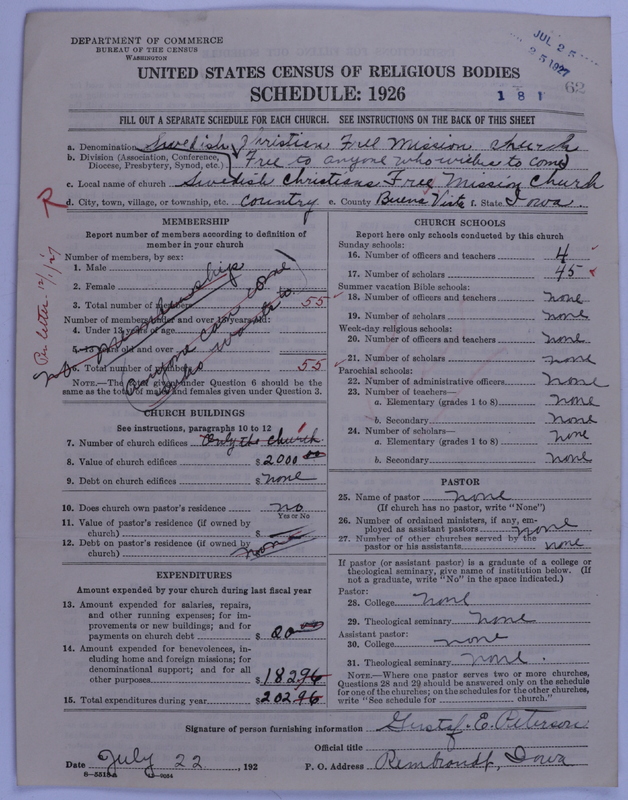 DEPARTMENT OF COMMERCE
BUREAU OF THE CENSUS
WASHINGTON
JUL 25
25 1927
UNITED STATES CENSUS OF RELIGIOUS BODIES
SCHEDULE: 1926
181
62
FILL OUT A SEPARATE SCHEDULE FOR EACH CHURCH. SEE INSTRUCTIONS ON THE BACK OF THIS SHEET
a. Denomination Swedish Christian Free Mission church
b. Division (Association, Conference, Diocese, Presbytery, Synod, etc.) Free to anyone who wishes to come
c. Local name of church Swedish Christians Free Mission Church
d. City, town, village, or township, etc. country e. County Buena Vista f. State Iowa
R
Per letter 12/1/27
MEMBERSHIP
Report number of members according to definition of
member in your church
Number of members, by sex:
1. Male
2. Female
3. Total number of members 55
Number of members under and over 13 years old:
4. Under 13 years of age
5. 13 years old and over
6. Total number of members 55
no membership
anyone can come
who wants to
NOTE.—The total given under Question 6 should be the
same as the total of males and females given under Question 3.
CHURCH BUILDINGS
See instructions, paragraphs 10 to 12
7. Number of church edifices Only the church
8. Value of church edifices $2000 00
9. Debt on church edifices $none
10. Does church own pastor's residence no
Yes or No
11. Value of pastor's residence (if owned by
church) $
12. Debt on pastor's residence (if owned by
church)
EXPENDITURES
Amount expended by your church during last fiscal year
13. Amount expended for salaries, repairs,
and other running expenses; for im-
provements or new buildings; and for
payments on church debt $ 20
14. Amount expended for benevolences, in-
cluding home and foreign missions; for
denominational support; and for all
other purposes $182 96
15. Total expenditures during year $202 96
CHURCH SCHOOLS
Report here only schools conducted by this church
Sunday schools:
16. Number of officers and teachers 4
17. Number of scholars 45
Summer vacation Bible schools:
18. Number of officers and teachers none
19. Number of scholars none
Week-day religious schools:
20. Number of officers and teachers none
21. Number of scholars none
Parochial schools:
22. Number of administrative officers none
23. Number of teachers—
a. Elementary (grades 1 to 8) none
b. Secondary none
24. Number of scholars—
a. Elementary (grades 1 to 8) none
b. Secondary none
PASTOR
25. Name of pastor none
(If church has no pastor, write "None")
26. Number of ordained ministers, if any, em-
ployed as assistant pastors none
27. Number of other churches served by the
pastor or his assistants none
If pastor (or assistant pastor) is a graduate of a college or
theological seminary, give name of institution below. (If
not a graduate, write "No" in the space indicated.)
Pastor:
28. College none
29. Theological seminary none
Assistant pastor:
30. College none
31. Theological seminary none.
NOTE.—Where one pastor serves two or more churches,
Questions 28 and 29 should be answered only on the schedule
for one of the churches; on the schedules for the other churches,
write "See schedule for ______ church."
Signature of person furnishing information Gustaf. E. Peterson
Official title
Date July 22, 192 P. O. Address Rembrandt, Iowa
8—5518a